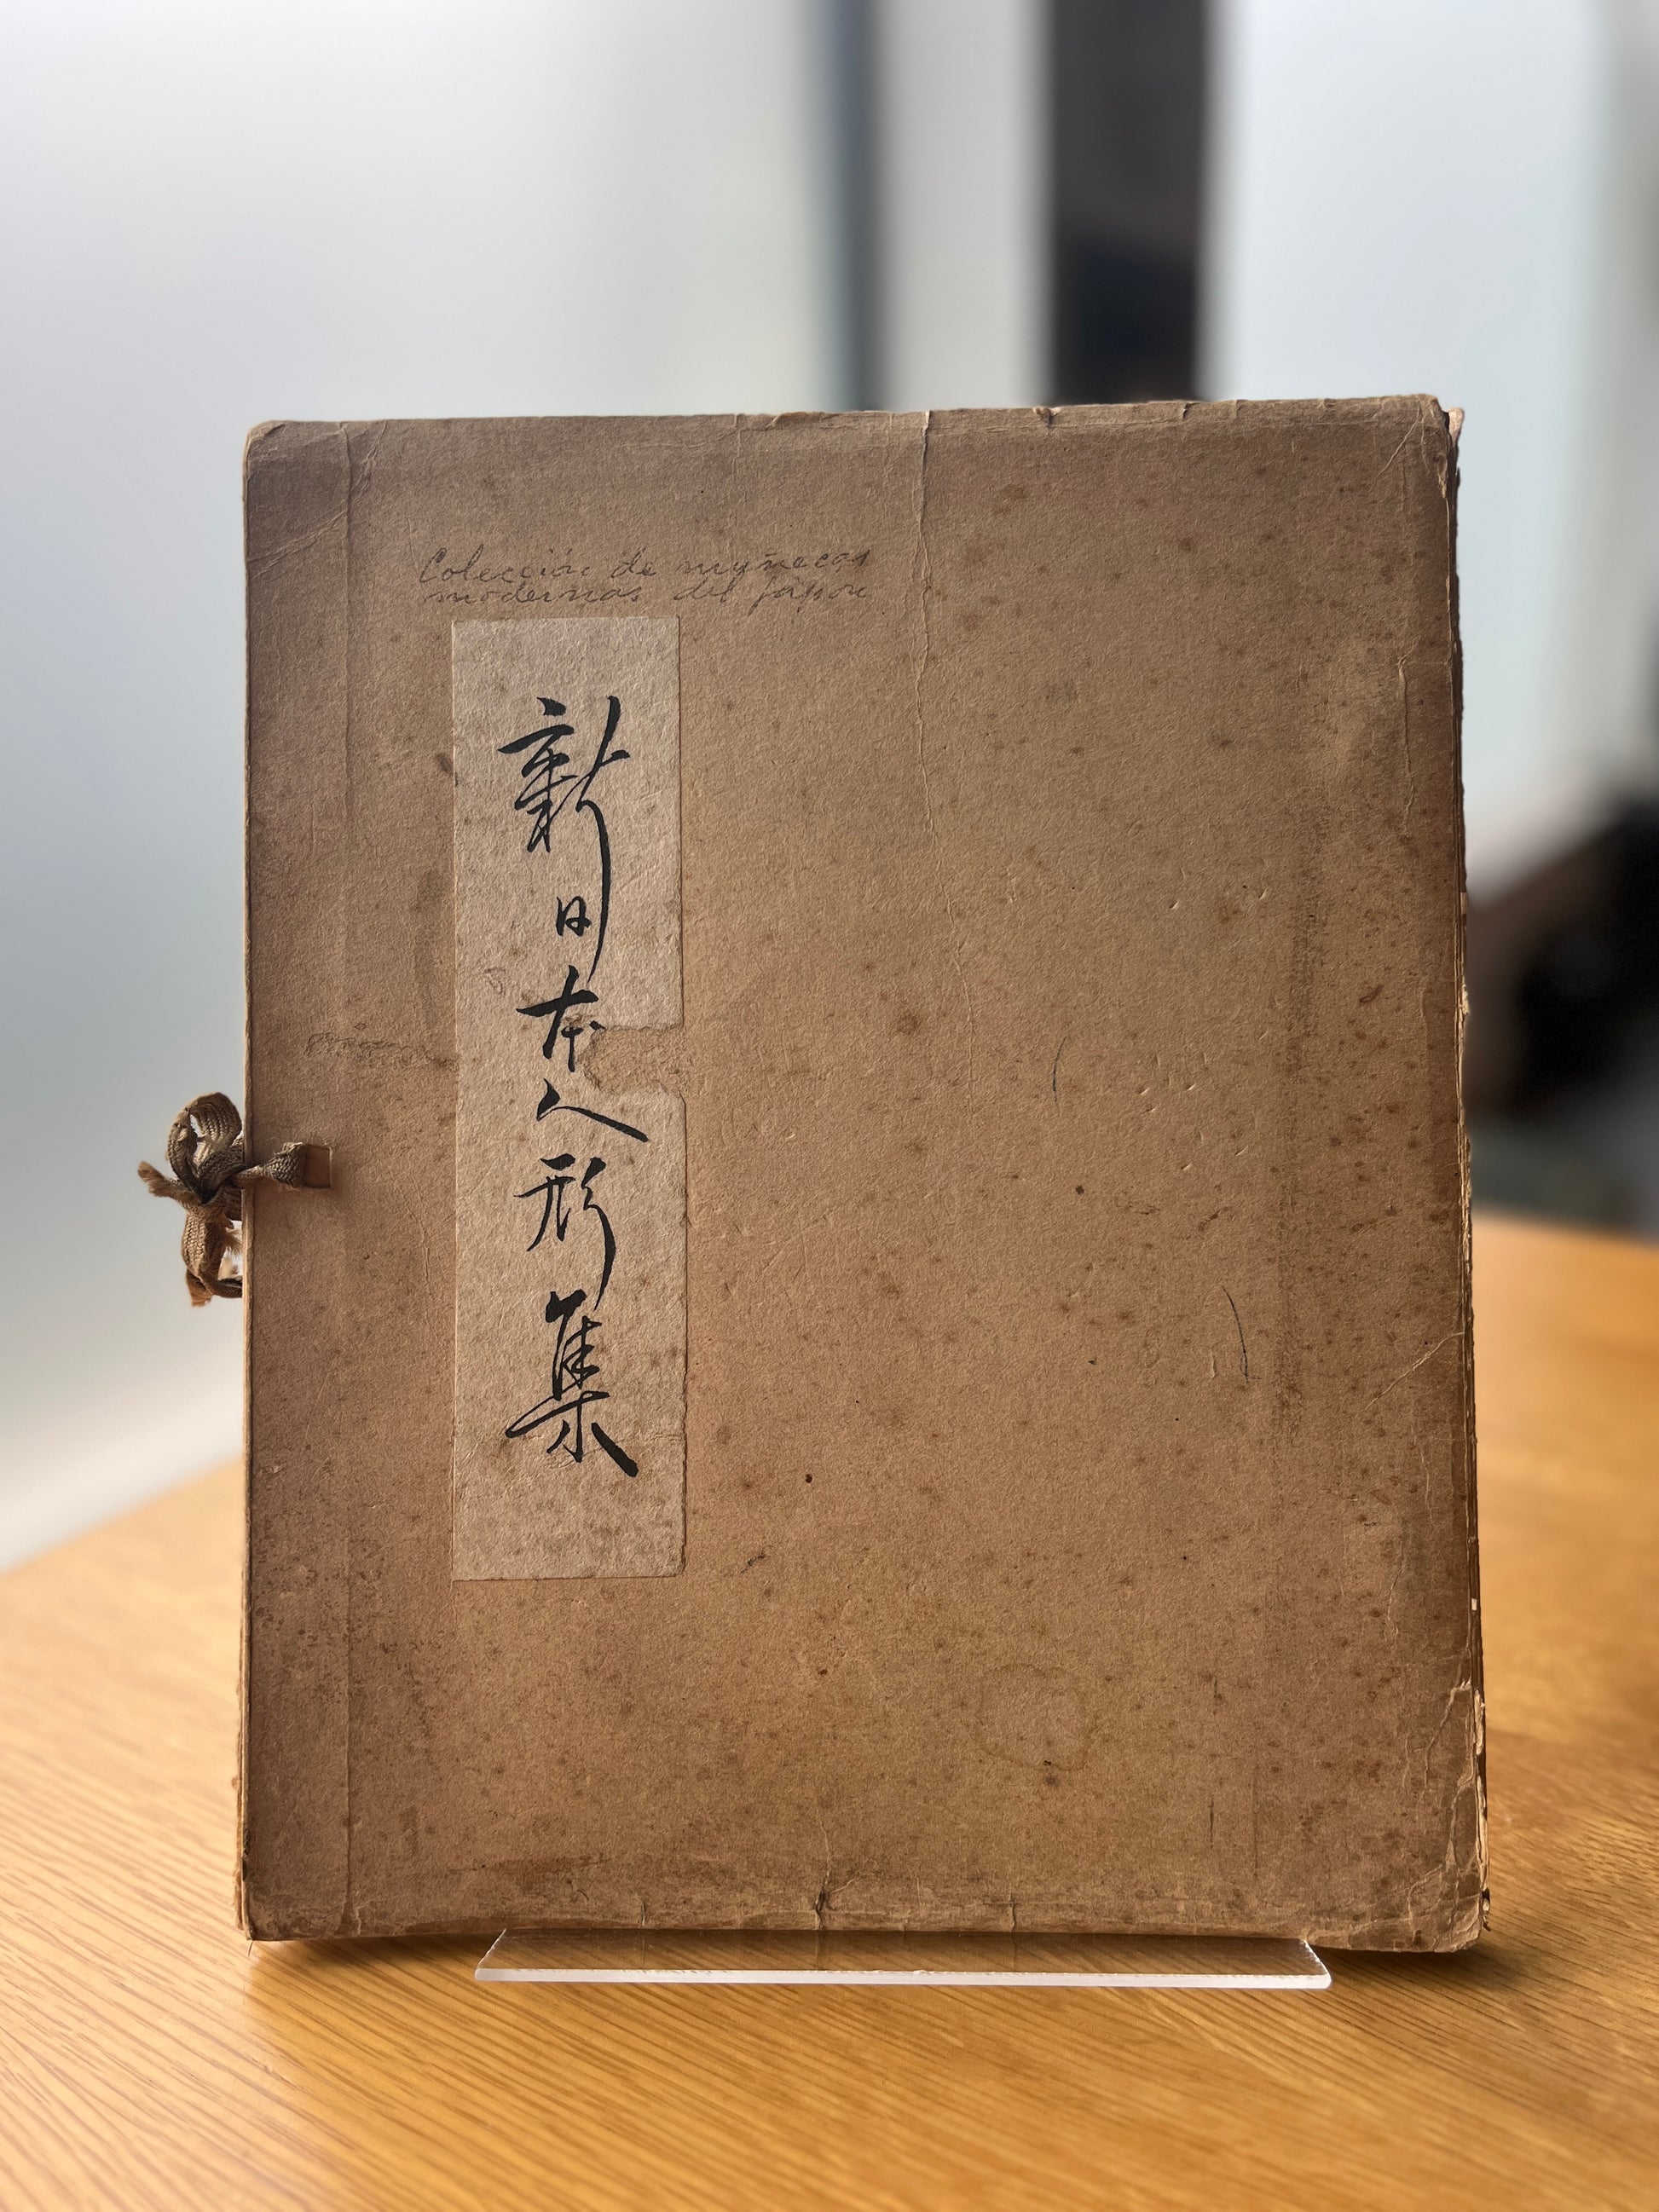 Colección de muñecas
modernas del Japon
新日本人形集